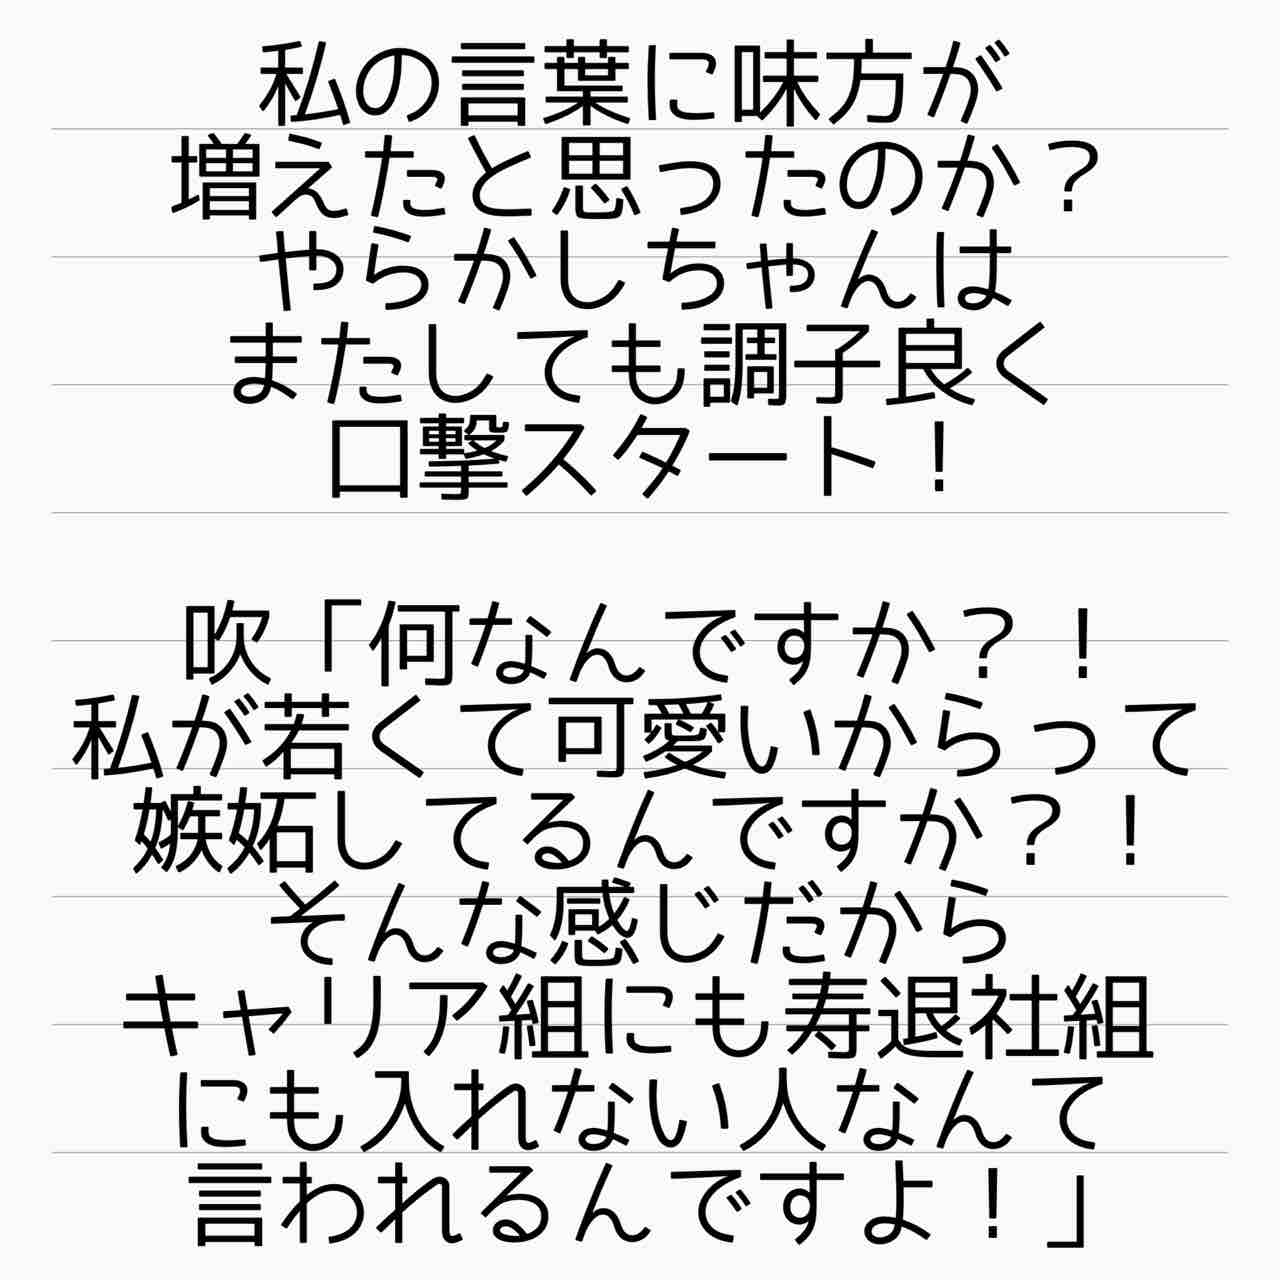 私の言葉に味方が
増えたと思ったのか？
やらかしちゃんは
またしても調子良く
口撃スタート！
吹「何なんですか？！
私が若くて可愛いからって
嫉妬してるんですか？！
そんな感じだから
キャリア組にも寿退社組
にも入れない人なんて
言われるんですよ！」